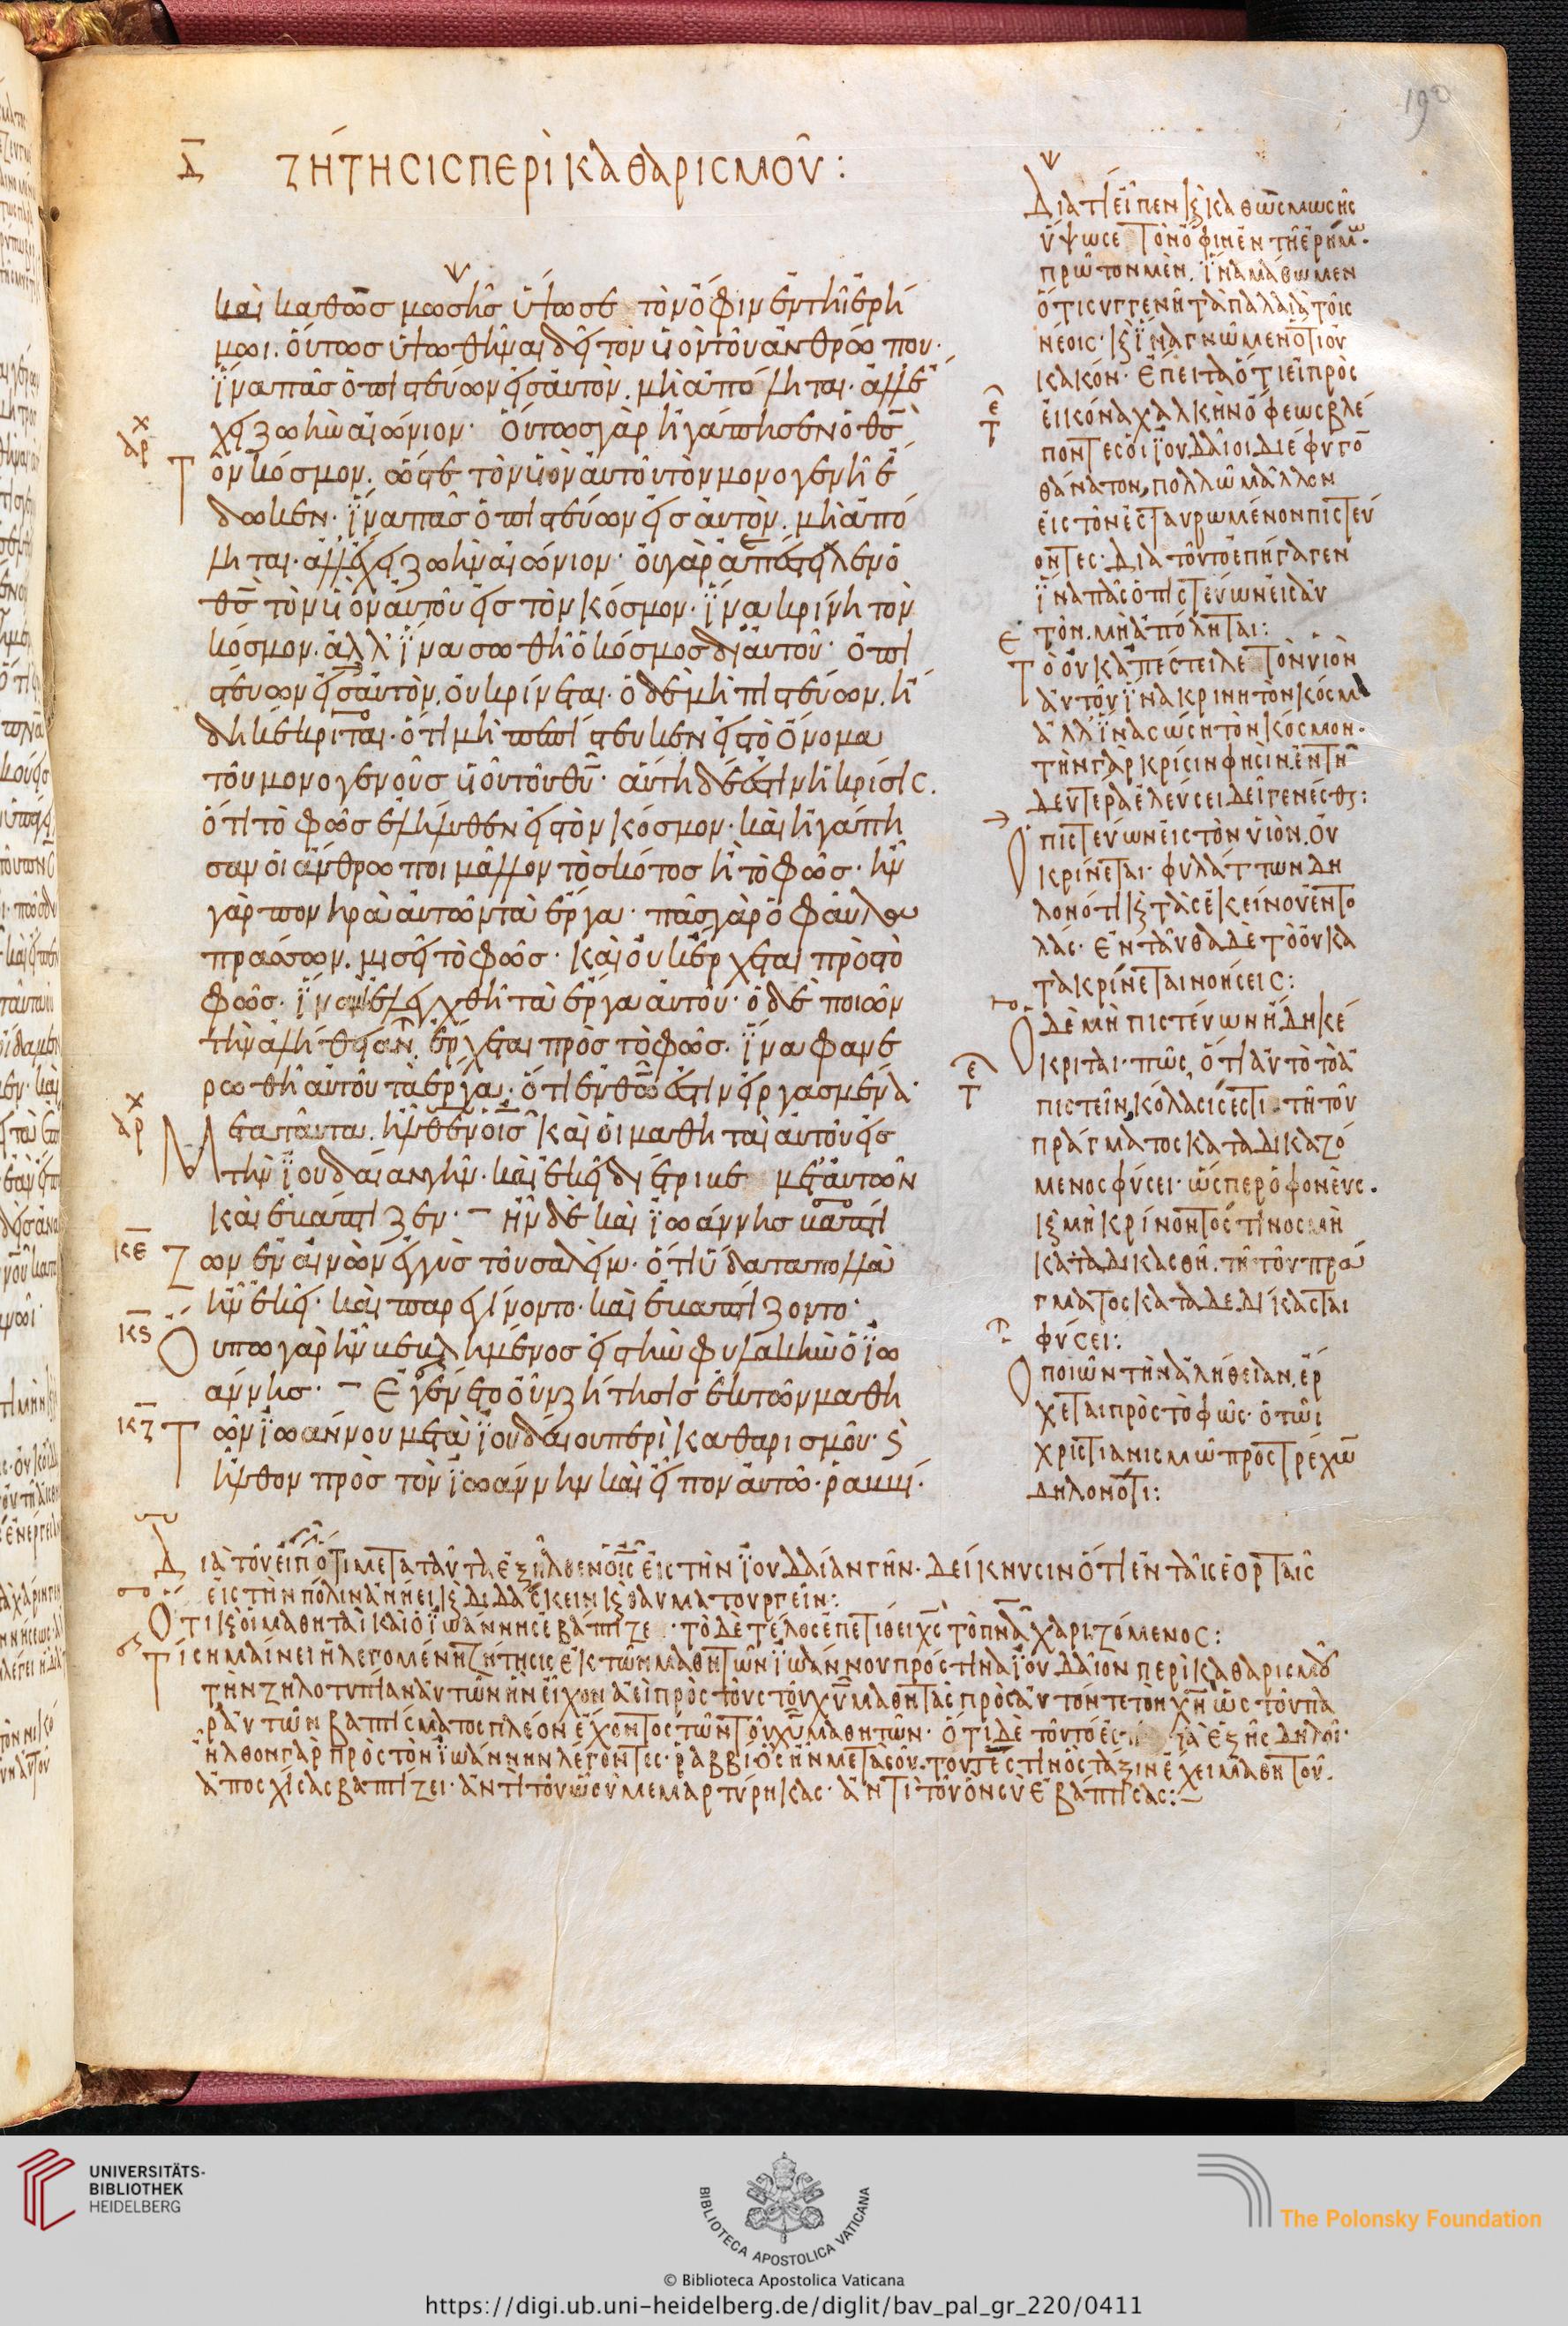 190
Δ ζήτησις περὶ καθαρισμοῦ:
καὶ καθὼς μωσῆς ὕψωσε τὸν ὄφιν ἐν τῆι ἐρή
μωι. οὕτως ὑψωθῆναι δεῖ τὸν υἱὸν τοῦ ἀνθρώπου·
ἵνα πᾶς ὁ πιστεύων εἰς αὐτὸν. μὴ ἀπόληται· ἀλλ' ἔ
χει ζωὴν αἰώνιον· Οὕτως γὰρ ἠγάπησεν ὁ θς
τὸν κόσμον. ὥστε τὸν υἱὸν αὐτοῦ τὸν μονογενῆ ἔ
δωκεν· ἵνα πᾶς ὁ πιστεύων εἰς αὐτὸν. μὴ ἀπό
ληται· ἀλλ' ἔχει ζωὴν αἰώνιον· οὐ γὰρ ἀπέστειλεν ὁ
θς τὸν υἱὸν αὐτοῦ εἰς τὸν κόσμον· ἵνα κρίνη τὸν
κόσμον. ἀλλ' ἵνα σωθῆ ὁ κόσμος δι' αὐτοῦ· ὁ πι
στεύων εἰς αὐτὸν. οὐ κρίνεται· ὁ δὲ μὴ πιστεύων. ἤ
δη κέκριται· ὅτι μὴ πεπίστευκεν εἰς τὸ ὄνομα
τοῦ μονογενοῦς υἱοῦ τοῦ θυ· αὕτη δέ ἐστιν ἡ κρίσις.
ὅτι τὸ φῶς ἐλήλυθεν εἰς τὸν κόσμον· καὶ ἠγάπη
σαν οἱ ἄνθρωποι μᾶλλον τὸ σκότος ἢ τὸ φῶς· ἦν
γὰρ πονηρὰ αὐτῶν τὰ ἔργα· πᾶς γὰρ ὁ φαῦλα
πράσσων. μισεῖ τὸ φῶς· καὶ οὐκ ἔρχεται πρὸς τὸ
φῶς· ἵνα μὴ ἐλεγχθῆ τὰ ἔργα αὐτοῦ· ὁ δὲ ποιῶν
τὴν ἀλήθειαν. ἔρχεται πρὸς τὸ φῶς. ἵνα φανε
ρωθῆ αὐτοῦ τὰ ἔργα· ὅτι ἐν θῶ ἐστὶν εἰργασμένα·
Μετὰ ταῦτα. ἦλθεν ὁ ις καὶ οἱ μαθηταὶ αὐτοῦ εἰς
τὴν ἰουδαίαν γῆν· καὶ ἐκεῖ διέτριβε μετ' αὐτῶν
καὶ ἐβάπτιζεν· – ἦν δὲ καὶ ἰωάννης βαπτί
ΚΕ ζων ἐν αἰνὼν ἐγγὺς τοῦ σαλείμ· ὅτι ὕδατα πολλὰ
ἦν ἐκεῖ· καὶ παρεγίνοντο· καὶ ἐβαπτίζοντο·
Κς Οὔπω γὰρ ἦν βεβλημένος εἰς τὴν φυλακὴν ὁ ἰω
άννης· – Ἐγένετο οὖν ζήτησις ἐκ τῶν μαθη
ΚΖ Τῶν ἰωάννου μετὰ ἰουδαίου περὶ καθαρισμοῦ· ϛ
ἦλθον πρὸς τὸν ἰωάννην καὶ εἶπον αὐτῶ· ῥαββί·
Διατί εἶπεν ϗ καθὼς μωσῆς
ὕψωσε τὸν ὄφιν ἐν τῆ ἐρήμω·
πρῶτον μὲν. ἵνα μάθωμεν
ὅτι συγγενῆ τὰ παλαιὰ τοῖς
νέοις· ϗ ἵνα γνῶμεν ὅτι οὐ
κακόν· ἔπειτα ὅτι εἰ πρὸς
εἰκόνα χαλκῆν ὄφεως βλέ
ποντες οἱ ἰουδαῖοι διέφυγο
θάνατον, πολλῶ μᾶλλον
εἰς τὸν ἐσταυρωμένον πιστεύ
οντες· διὰ τοῦτο ἐπήγαγεν
ἵνα πᾶς ὁ πιστεύων εἰς αὐ
τὸν. μὴ ἀπόληται:
Τὸ οὐκ ἀπέστειλε τὸν υἱὸν
αὐτοῦ ἵνα κρίνη τὸν κόσμ
ἀλλ' ἵνα σώση τὸν κόσμον·
τὴν γὰρ κρίσιν φησὶν. ἐν τῆ
δευτέρα ἐλεύσει δεῖ γενέσθαι:
Ὁ πιστεύων εἰς τὸν υἱὸν. οὐ
κρίνεται· φυλάττων δη
λονότι ϗ τὰς ἐκείνου ἐντο
λάς· ἐνταῦθα δὲ τὸ οὐ κα
τακρίνεται νοήσεις:
Ὁ δὲ μὴ πιστεύων ἤδη κέ
κριται· πῶς, ὅτι αὐτὸ τὸ ἀ
πιστεῖν, κόλασίς ἐστι· τῆ τοῦ
πράγματος καταδικαζό
μενος φύσει· ὥσπερ ὁ φονεύς.
ϗ μὴ κρίνοντός τινος μὴ
καταδικασθῆ. τῆ τοῦ πρά
γματος καταδεδίκασται
φύσει:
Ὁ ποιῶν τὴν ἀλήθειαν, ἔρ
χεται πρὸς τὸ φῶς· ὁ τῶι
χριστιανισμῶ προστρέχω
δηλονότι:
Διὰ τοῦ εἰπεῖν ὅτι μετὰ ταῦτα ἐξῆλθεν ὁ ις εἰς τὴν ἰουδαίαν γῆν· δείκνυσιν ὅτι ἐν ταῖς ἑορταῖς
εἰς τὴν πόλιν ἀνήει ϗ διδάσκειν ϗ θαυματουργεῖν:
Ὅτι ϗ οἱ μαθηταὶ καὶ ὁ ἰωάννης ἐβάπτιζε· τὸ δὲ τέλος ἐπετίθει χς τὸ πνα χαριζόμενος:
Τί σημαίνει ἡ λεγομένη ζήτησις ἐκ τῶν μαθητῶν ἰωάννου πρός τινα ἰουδαῖον περὶ καθαρισμοῦ
τὴν ζηλοτυπίαν αὐτῶν ἣν εἶχον ἀεὶ πρὸς τοὺς τοῦ χυ μαθητὰς πρὸς αὐτόν τε τὸν χν ὡς τοῦ πα
ρ' αὐτῶν βαπτίσματος πλέον ἔχοντος τῶν τοῦ χυ μαθητῶν· ὅτι δὲ τοῦτό ἐστι τὰ ἑξῆς δηλοῖ·
ἦλθον γὰρ πρὸς τὸν ἰωάννην λέγοντες· ῥαββὶ ὃς ἦν μετὰ σοῦ. τουτέστιν ὃς τάξιν ἔχει μαθητοῦ.
ἀποσχίσας βαπτίζει· ἀντὶ τοῦ ὧ σὺ μεμαρτύρηκας· ἀντὶ τοῦ ὃν σὺ ἐβάπτισας:
UNIVERSITÄTS-
BIBLIOTHEK
HEIDELBERG
BIBLIOTECA APOSTOLICA VATICANA
The Polonsky Foundation
© Biblioteca Apostolica Vaticana
https://digi.ub.uni-heidelberg.de/diglit/bav_pal_gr_220/0411